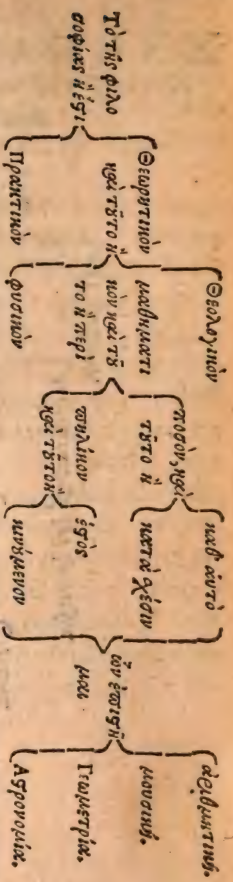 Τὸ τῆς φιλο
σοφίας ἢ ἐϛι
Θεωρητικὸν
καὶ τȣ͂το ἢ
Πρακτικὸν
Θεολογικὸν
μαθηματι
κὸν καὶ τȣ͂
το ἢ περὶ
φυσικὸν
ποσὸν, καὶ
τȣ͂το ἢ
πηλίκον
καὶ τȣ͂το ἢ
καθ' αὑτὸ
κατὰ χέσιν
ἑϛὸς
κινȣ́μενον
ὧν ἐπιϛῆ
μαι
ἀριθμητικὴ.
μουσικὴ.
Γεωμετρία.
Αϛρονομία.